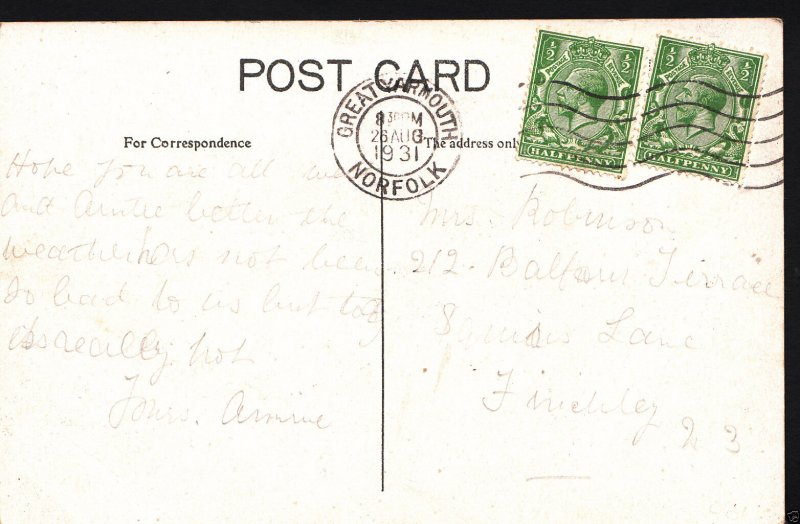 POST CARD
GREAT YARMOUTH
8 30 PM
26 AUG
1931
NORFOLK
½ ½
POSTAGE REVENUE
HALFPENNY
½ ½
POSTAGE REVENUE
HALFPENNY
For Correspondence
The address only
Hope you are all
and Auntie better the
weather has not been
so bad to us but
is really hot
Yours.
Mrs. Robinson
212. Terrace
Squires Lane
Finchley
N 3